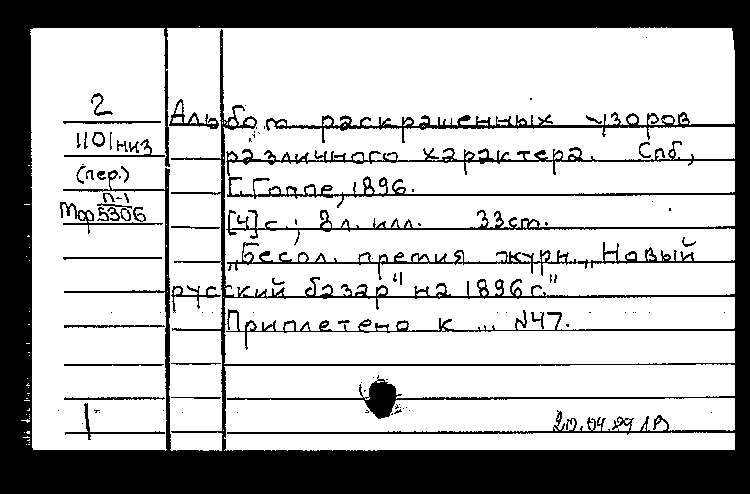 2
1101 низ
(пер.)
П-1
Тор 5306
Альбом раскрашенных узоров
различного характера. Спб,
Г. Гоппе, 1896.
[4] с.; 8 л. илл. 33 cm.
„Бесол. премия журн. „Новый
русский базар" на 1896 г."
Приплетено к „ N47.
1
20.04.89